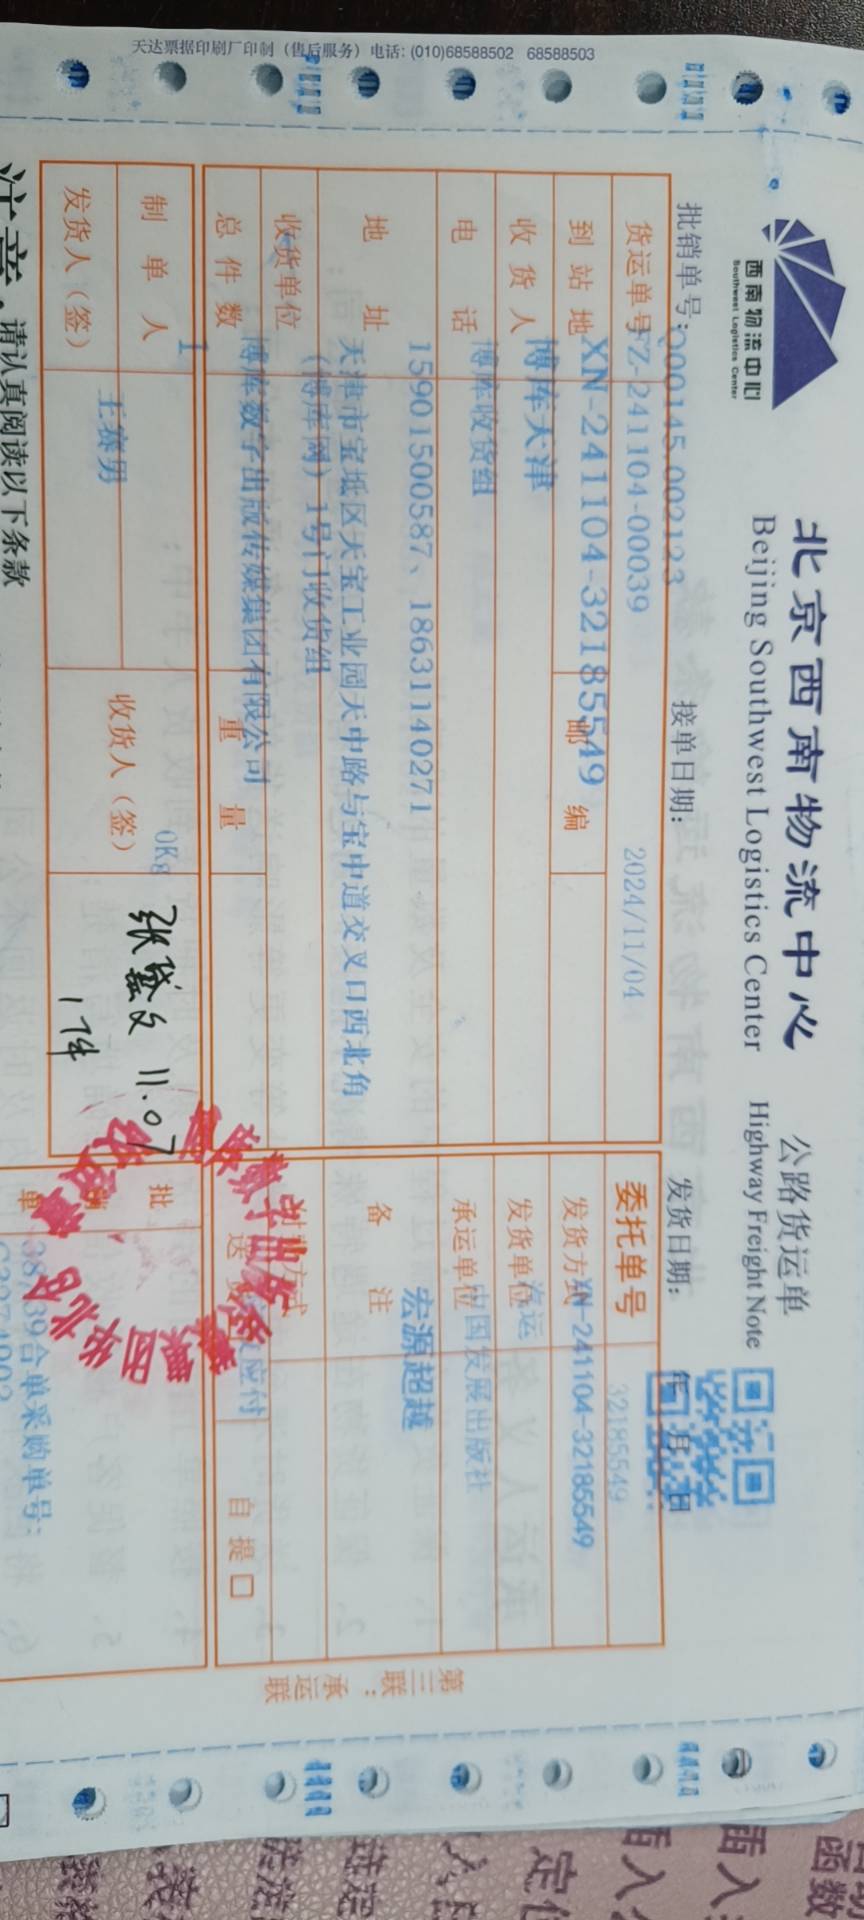 天达票据印刷厂印制（售后服务）电话: (010)68588502 68588503
西南物流中心
Southwest Logistics Center
北京西南物流中心
公路货运单
Beijing Southwest Logistics Center
Highway Freight Note
批销单号:
000145,002123
接单日期:
发货日期:
年 月 日
货运单号
YZ-241104-00039
2024/11/04
委托单号
32185549
到站地
XN-241104-32185549
邮编
发货方式
XN-241104-32185549
收货人
博库天津
发货单位
汽运
电话
博库收货组
承运单位
中国发展出版社
15901500587、18631140271
地址
天津市宝坻区天宝工业园天中路与宝中道交叉口西北角
备注
宏源超越
(博库网) 1号门收货组
收货单位
博库数字出版传媒集团有限公司
总件数
重量
送货
应付
自提口
1
0Kg
制单人
王赛男
发货人（签）
收货人（签）
11.07
17件
批
单
38739合单采购单号:
第三联：承运联
注意,请认真阅读以下条款